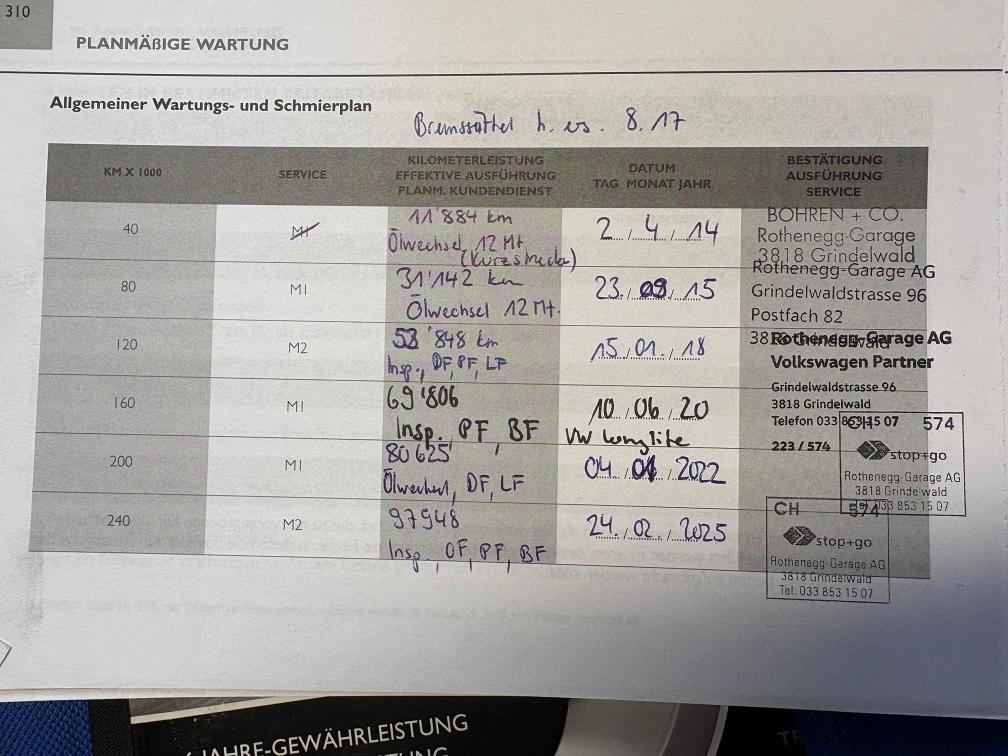 310
PLANMÄßIGE WARTUNG
Allgemeiner Wartungs- und Schmierplan
Bremssättel h. ers. 8.17
KM X 1000
SERVICE
KILOMETERLEISTUNG
EFFEKTIVE AUSFÜHRUNG
PLANM. KUNDENDIENST
DATUM
TAG MONAT JAHR
BESTÄTIGUNG
AUSFÜHRUNG
SERVICE
40
M1
11'884 km
Ölwechsel 12 Mt.
(Kurzstrecke)
2 / 4 / 14
BOHREN + CO.
Rothenegg-Garage
3818 Grindelwald
80
M1
31'142 km
Ölwechsel 12 Mt.
23. / 09 / 15
Rothenegg-Garage AG
Grindelwaldstrasse 96
Postfach 82
3818 Grindelwald
120
M2
53'848 km
Insp., DF, PF, LF
15 / 01. / 18
Rothenegg-Garage AG
Volkswagen Partner
Grindelwaldstrasse 96
3818 Grindelwald
Telefon 033 853 15 07
223 / 574
160
M1
69'806
Insp., PF, BF
10 / 06 / 20
VW longlife
200
M1
80625
Ölwechsel, DF, LF
04 / 01 / 2022
CH 574
stop+go
Rothenegg-Garage AG
3818 Grindelwald
Tel. 033 853 15 07
240
M2
97948
Insp., OF, PF, BF
24. / 02 / 2025
CH 574
stop+go
Rothenegg-Garage AG
3818 Grindelwald
Tel. 033 853 15 07
JAHRE-GEWÄHRLEISTUNG